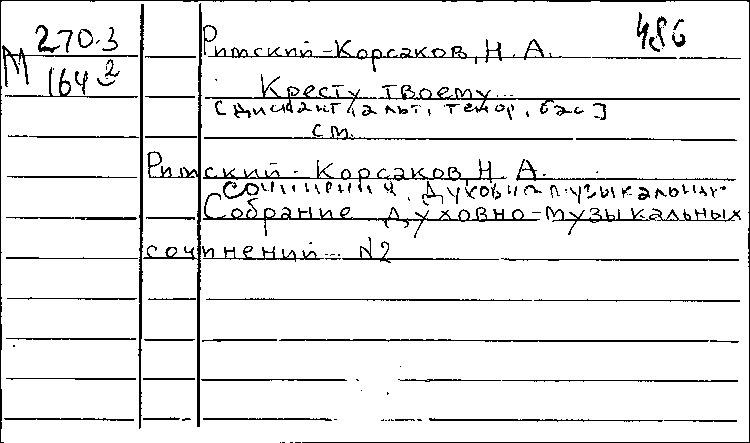 486
М 270.3
164 2
Римский-Корсаков, Н. А.
Кресту твоему...
[дискант, альт, тенор, бас]
см.
Римский-Корсаков, Н. А.
Сочинения. Духовно-музыкальных
Собрание духовно-музыкальных
сочинений. N2